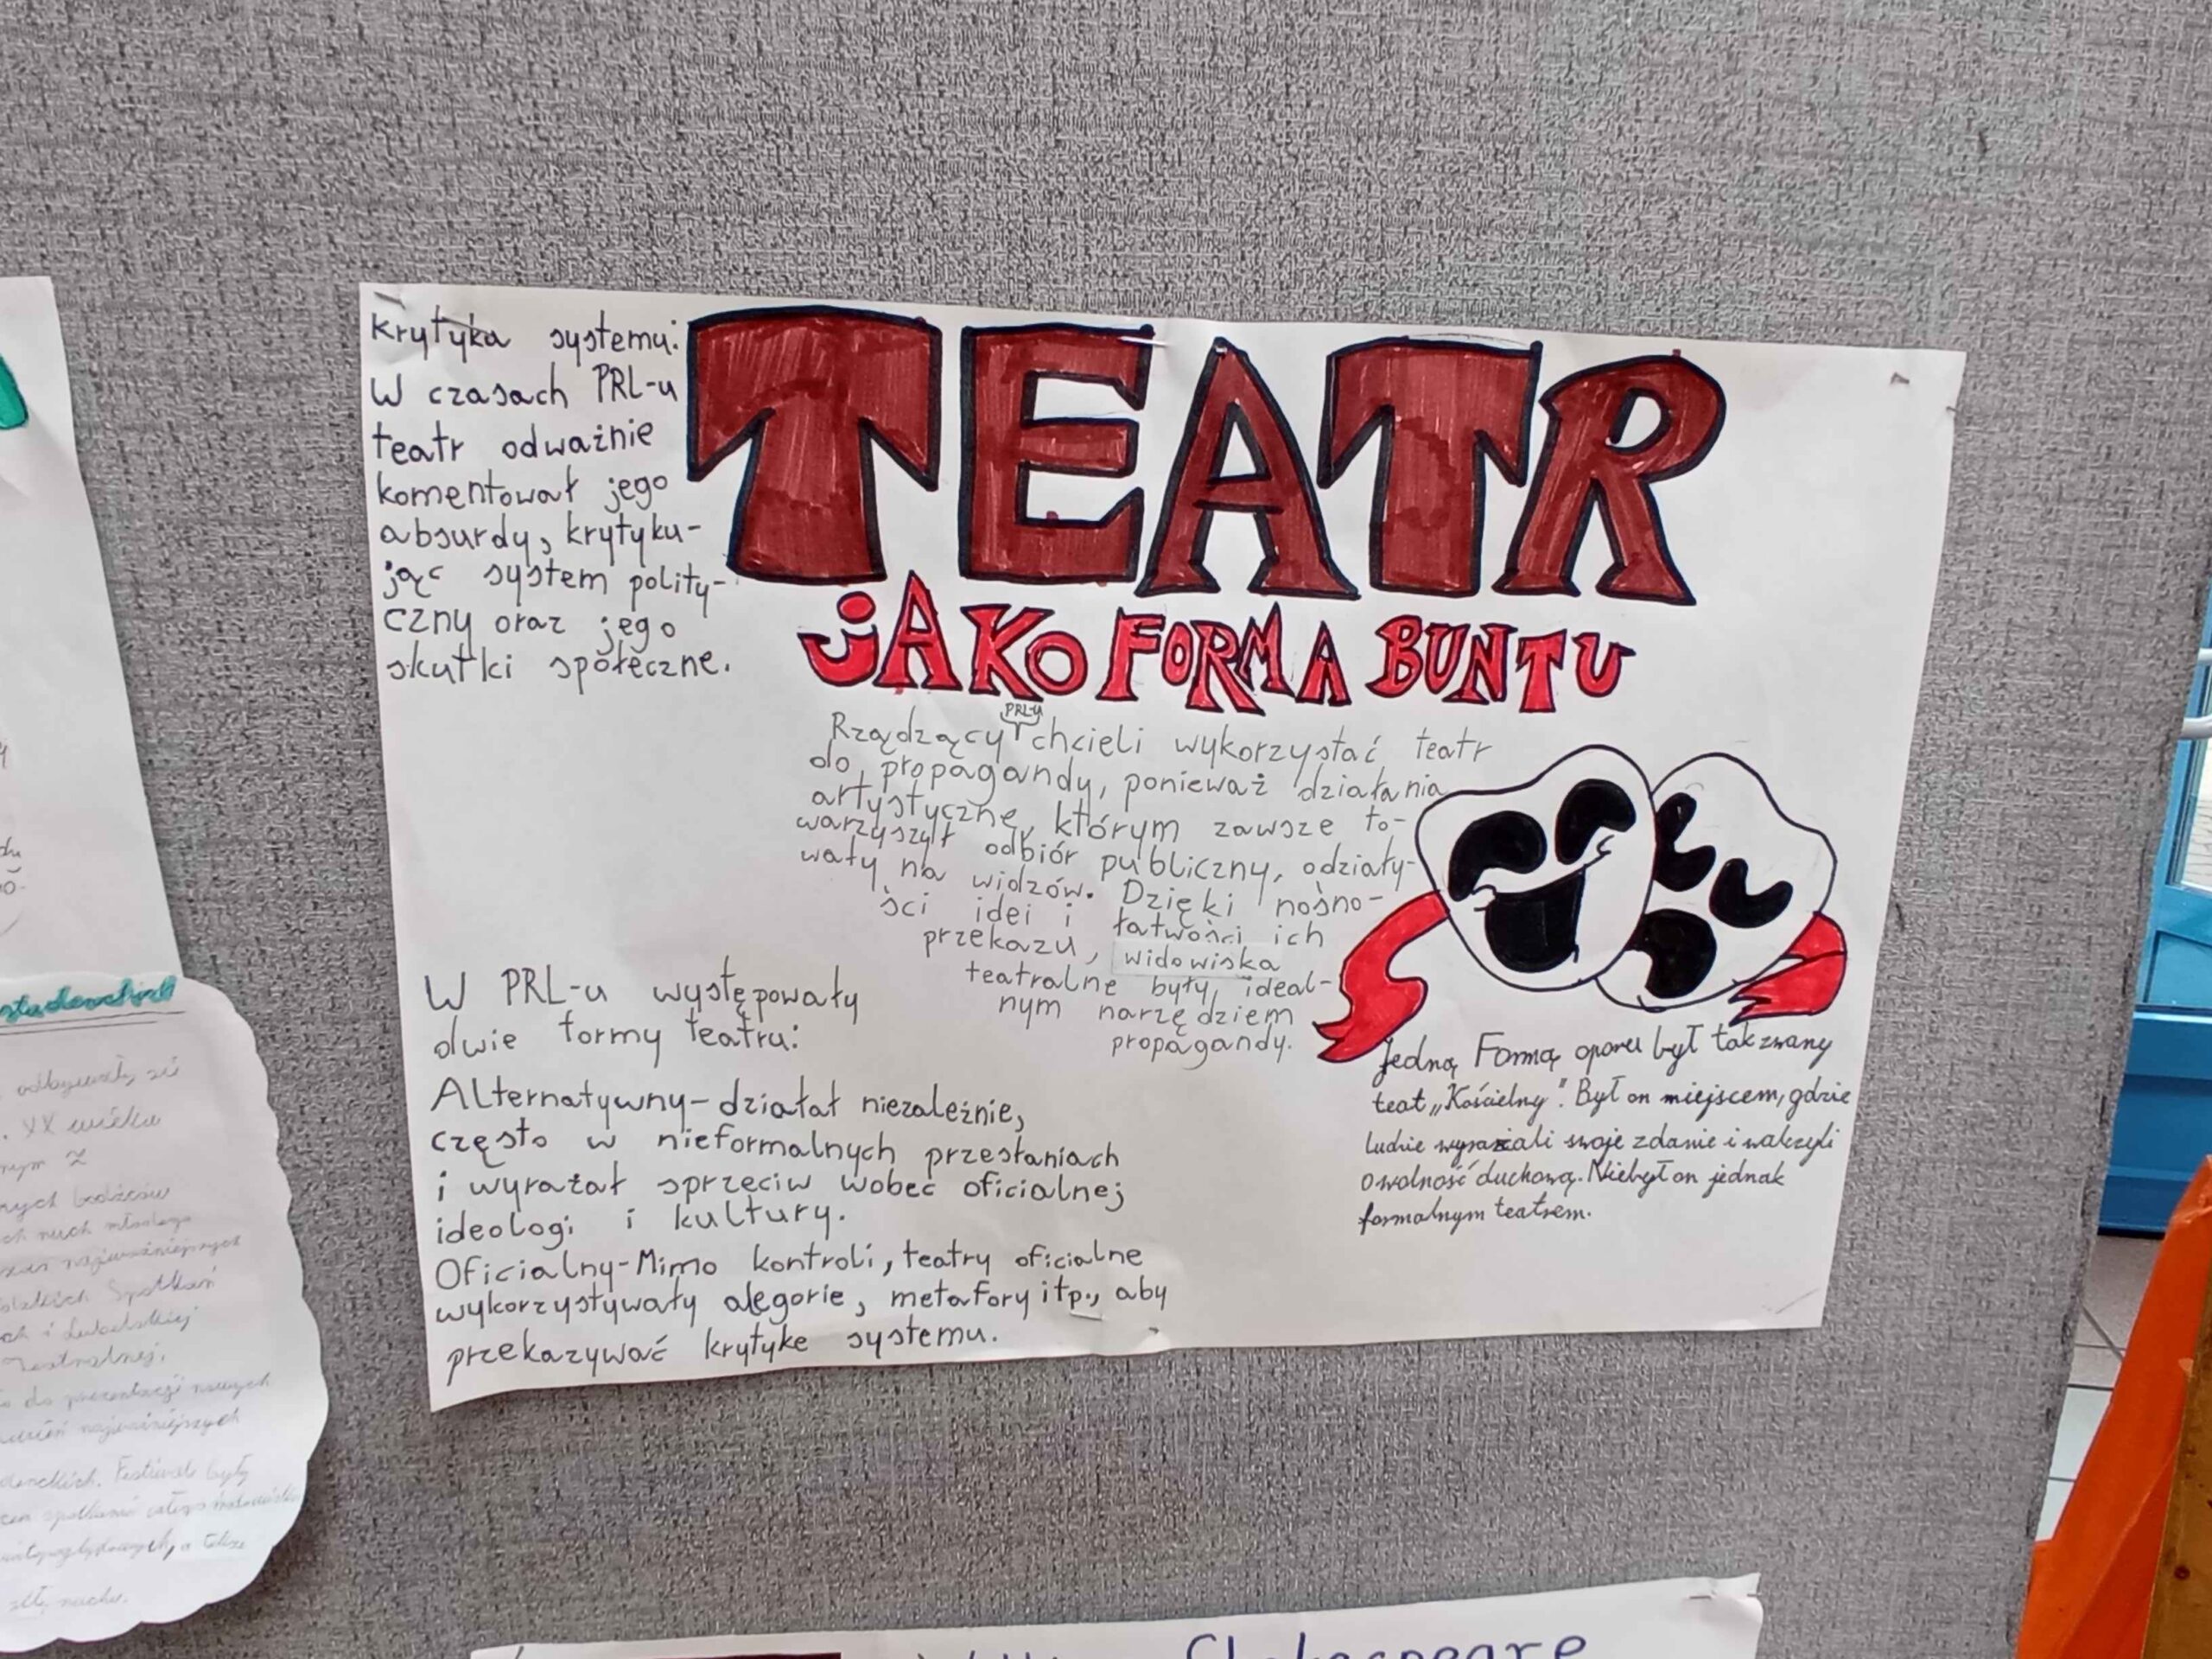 TEATR
JAKO FORMA BUNTU
Krytyka systemu:
W czasach PRL-u
teatr odważnie
komentował jego
absurdy, krytyku-
jąc system polity-
czny oraz jego
skutki społeczne.
PRL-u
Rządzący chcieli wykorzystać teatr
do propagandy, ponieważ działania
artystyczne, którym zawsze to-
warzyszył odbiór publiczny, odziały-
wały na widzów. Dzięki nośno-
ści idei i łatwości ich
przekazu, widowiska
teatralne były ideal-
nym narzędziem
propagandy.
W PRL-u występowały
dwie formy teatru:
Alternatywny-działał niezależnie,
często w nieformalnych przestaniach
i wyrażał sprzeciw wobec oficialnej
ideologi i kultury.
Oficialny-Mimo kontroli, teatry oficialne
wykorzystywały alegorie, metafory itp., aby
przekazywać krytyke systemu.
Jedną Formą oporu był tak zwany
teat „Kościelny". Był on miejscem, gdzie
ludzie wyrażali swoje zdanie i walczyli
o wolność duchową. Niebył on jednak
formalnym teatrem.
odbywały się
XX wieku
Spotkań
i Lubelskiej
Teatralnej.
do prezentacji nowych
najważniejszych
Festiwale były
Shakespeare